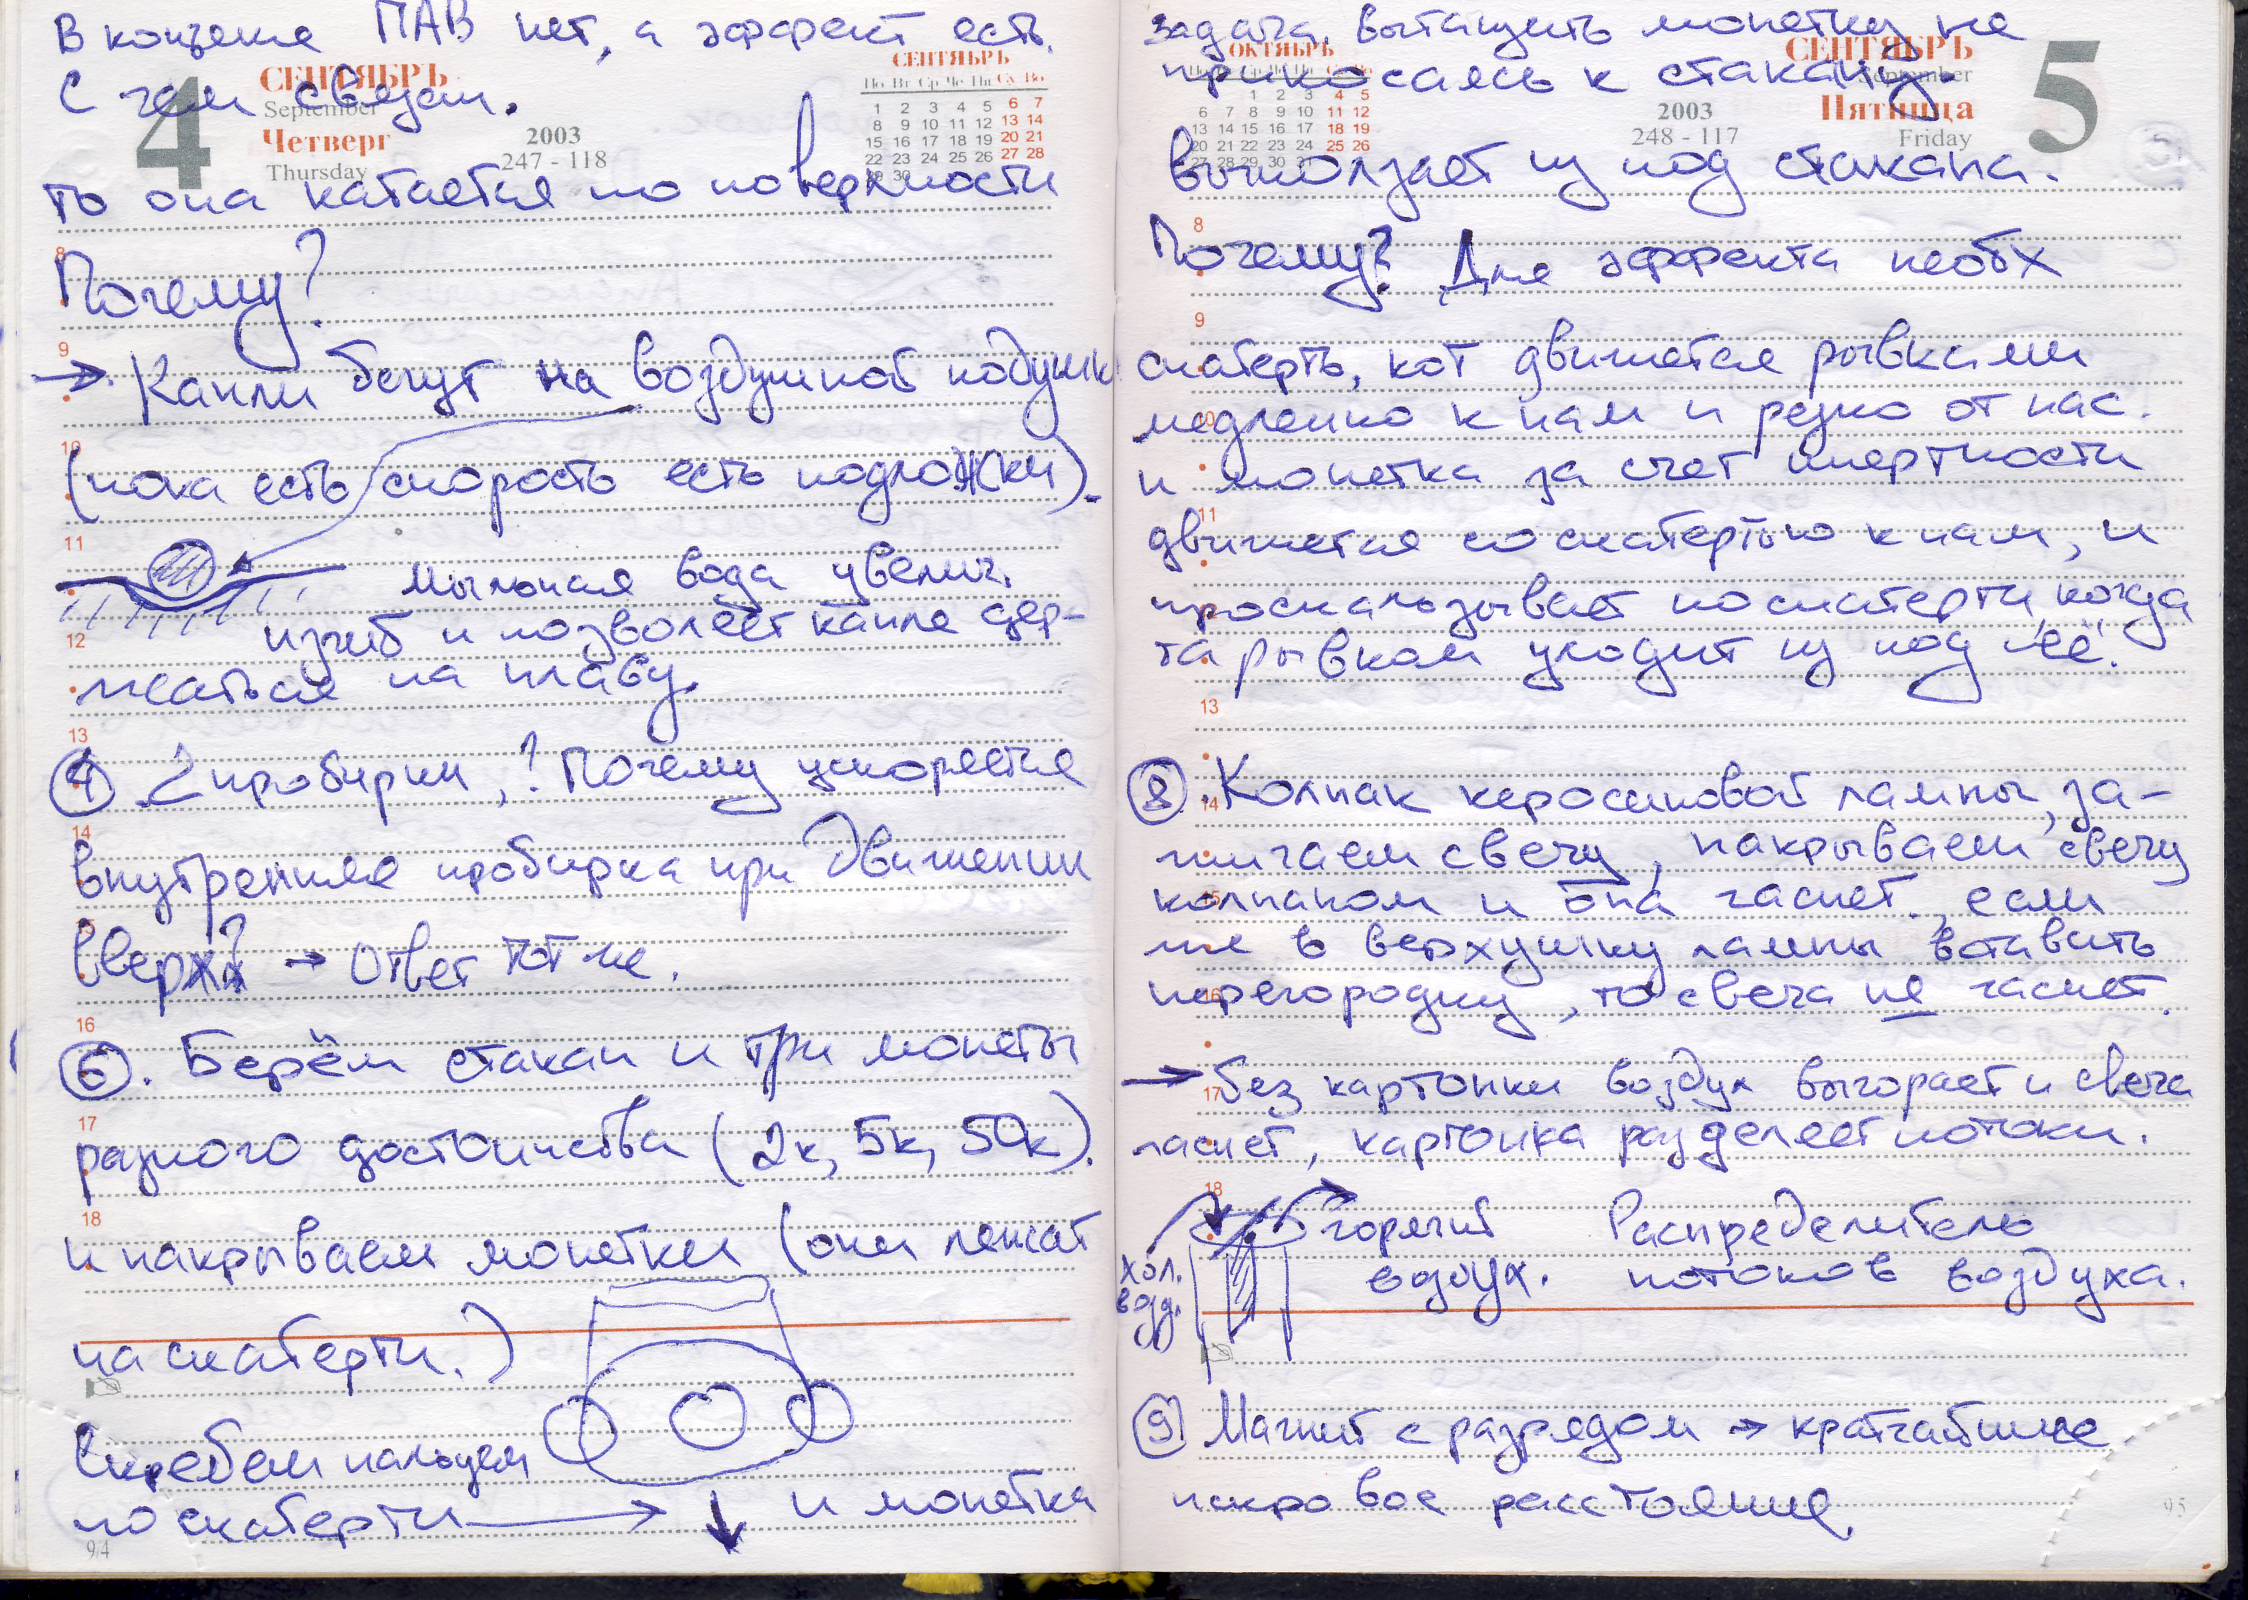 В концепе ПАВ нет, а эффект есть.
С чем связан.
4
СЕНТЯБРЬ
September
Четверг
Thursday
2003
247 - 118
СЕНТЯБРЬ
По Вт Ср Че Пя Су Во
1 2 3 4 5 6 7
8 9 10 11 12 13 14
15 16 17 18 19 20 21
22 23 24 25 26 27 28
29 30
то она катается по поверхности
Почему?
→ Капли бегут на воздушной подушк
(пока есть скорость есть подложки).
Мыльная вода увелич.
изгиб и позволяет капле дер-
жаться на плаву.
④ 2 пробирки, ? Почему ускоряется
внутренняя пробирка при движении
вверх? → Ответ тот же.
⑥. Берём стакан и три монеты
разного достоинства (2к, 5к, 50к).
и накрываем монетки (они лежат
на скатерти.)
Скребем пальцем
по скатерти → и монетка
8
9
10
11
12
13
14
15
16
17
18
94
задача. вытащить монетку не
прикосаясь к стакану.
ОКТЯБРЬ
1 2 3 4 5
6 7 8 9 10 11 12
13 14 15 16 17 18 19
20 21 22 23 24 25 26
27 28 29 30 31
2003
248 - 117
СЕНТЯБРЬ
September
Пятница
Friday
5
выползает из под стакана.
Почему? Для эффекта необх
скатерть, кот движется рывками
медленно к нам и резко от нас.
и монетка за счет инертности
движется со скатертью к нам, и
проскальзывает по скатерти, когда
та рывком уходит из под "её".
⑧. Колпак керосиновой лампы, за-
жигаем свечу, накрываем свечу
колпаком и она гаснет., если
же в верхушку лампы вставить
перегородку, то свеча не гаснет.
→ без картонки воздух выгорает и свеча
гаснет, картонка разделяет потоки.
хол.
возд.
горячий
воздух.
Распределитель
потоков воздуха.
⑨ Магнит с разрядом → кратчайшее
искровое расстояние.
8
9
10
11
12
13
14
15
16
17
18
95